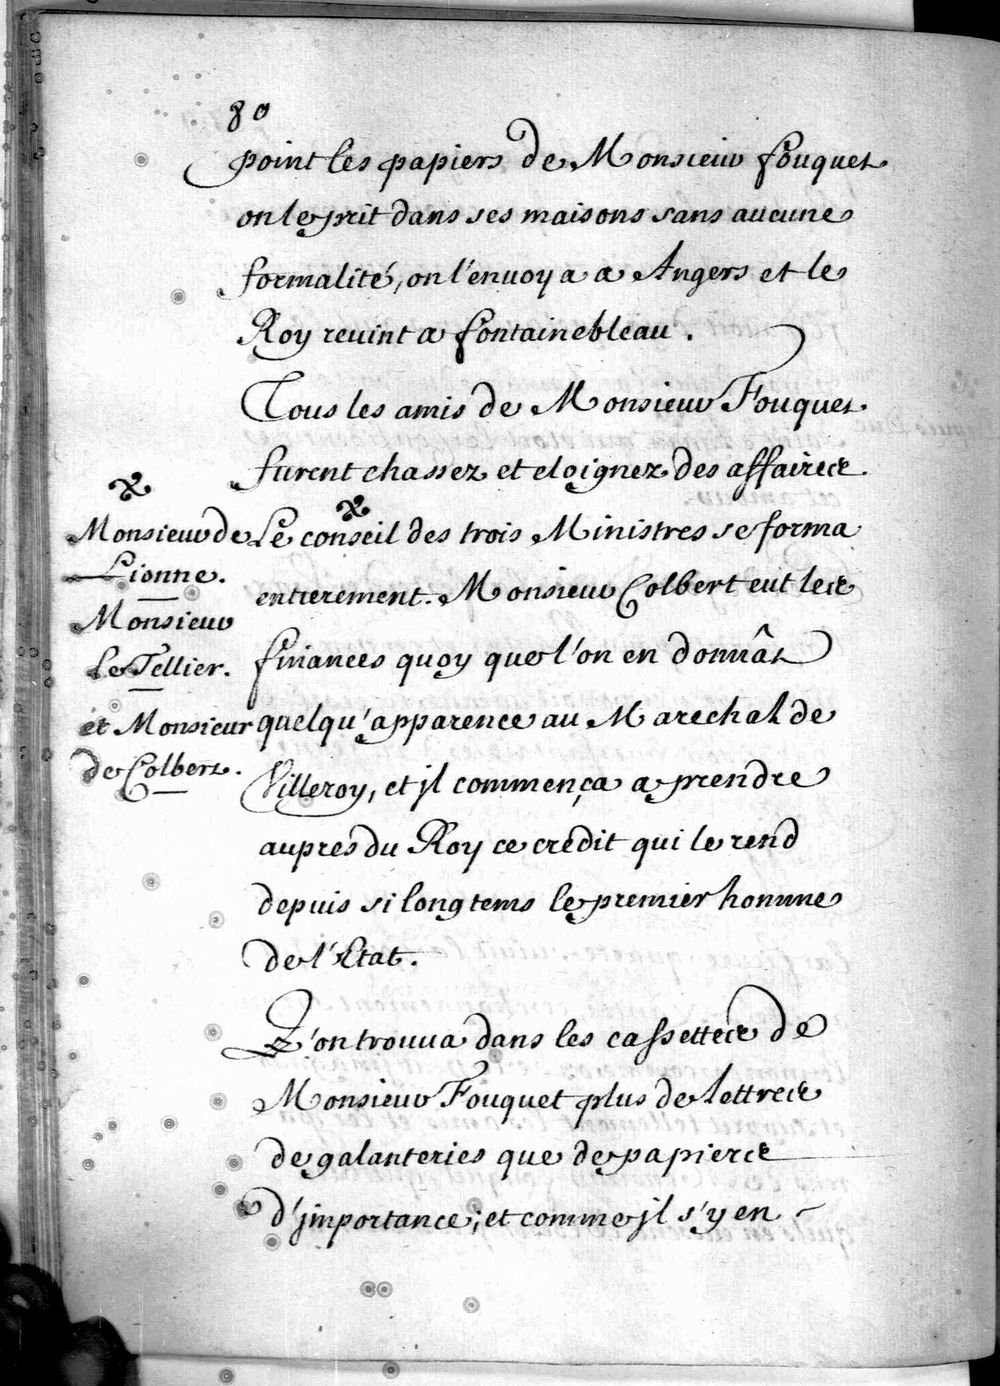 80
point les papiers de Monsieur fouquet
on le prit dans ses maisons sans aucune
formalité, on l'envoya a Angers et le
Roy revint a fontainebleau.
Tous les amis de Monsieur Fouquet
furent chassez et eloignez des affaires
Le conseil des trois Ministres se forma
entierement. Monsieur Colbert eut les
finances quoy que l'on en donnât
quelqu'apparence au Marechal de
Villeroy, et jl commença a prendre
aupres du Roy ce credit qui le rend
depuis si longtems le premier homme
de l'Etat.
L'on trouva dans les cassettes de
Monsieur Fouquet plus de lettres
de galanteries que de papiers
d'jmportance; et comme jl s'y en
Monsieur de
Lionne.
Monsieur
Le Tellier.
et Monsieur
de Colbert.